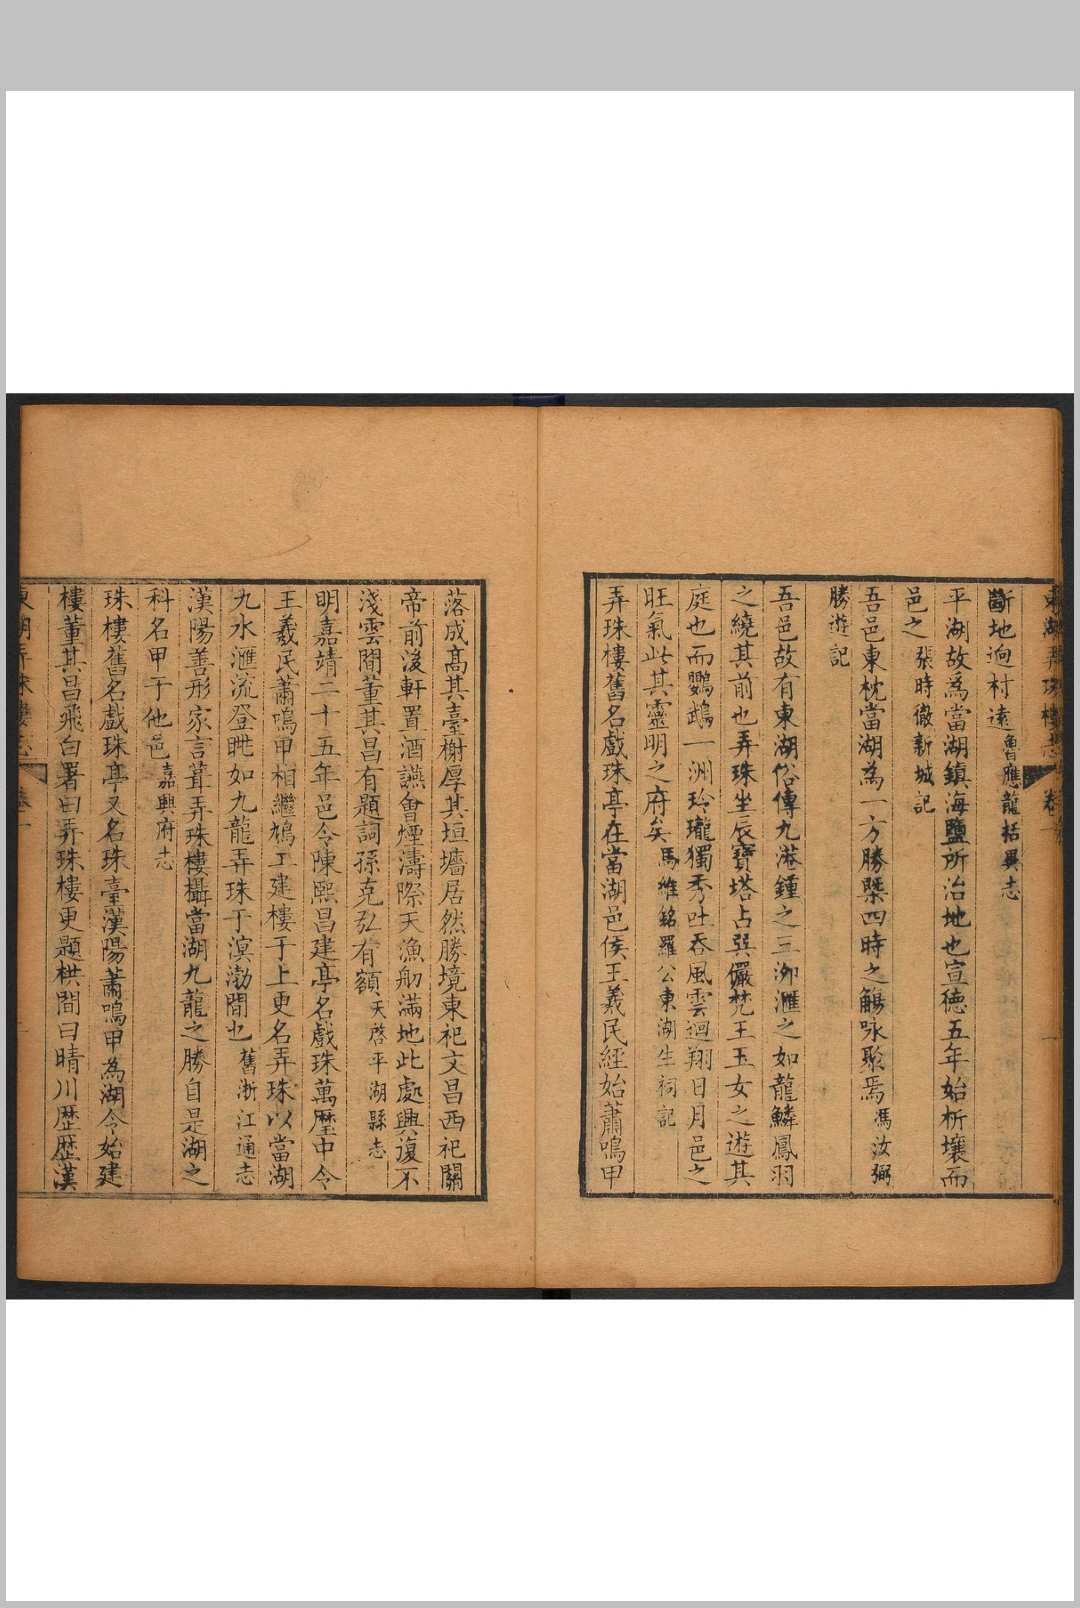 東湖弄珠樓志 卷一
斷地逈村遠 魯應龍括異志
平湖故爲當湖鎮海鹽所治地也宣徳五年始析壤而
邑之 張時徹新城記
吾邑東枕當湖為一方勝槩四時之觴咏聚焉 馮汝弼
勝遊記
吾邑故有東湖俗傳九港鍾之三泖滙之如龍鱗鳳羽
之繞其前也弄珠坐辰寶塔占巽儼梵王玉女之遊其
庭也而鸚鵡一洲玲瓏獨秀吐吞風雲迴翔日月邑之
旺氣此其靈明之府矣 馬維銘羅公東湖生祠記
弄珠樓舊名戲珠亭在當湖邑侯王羲民經始蕭鳴甲
落成髙其臺榭厚其垣墻居然勝境東祀文昌西祀關
帝前浚軒置酒讌會煙濤際天漁舠滿地此處興復不
淺雲間董其昌有題詞孫克弘有額 天啓平湖縣志
明嘉靖二十五年邑令陳熙昌建亭名戲珠萬歴中令
王羲民蕭鳴甲相繼鳩工建樓于上更名弄珠以當湖
九水滙流登眺如九龍弄珠于溟渤間也 舊浙江通志
漢陽善形家言葺弄珠樓攝當湖九龍之勝自是湖之
科名甲于他邑 嘉興府志
珠樓舊名戲珠亭又名珠臺漢陽蕭鳴甲為湖令始建
樓董其昌飛白署曰弄珠樓更題栱間曰晴川歴歴漢
東湖弄珠樓志 卷一